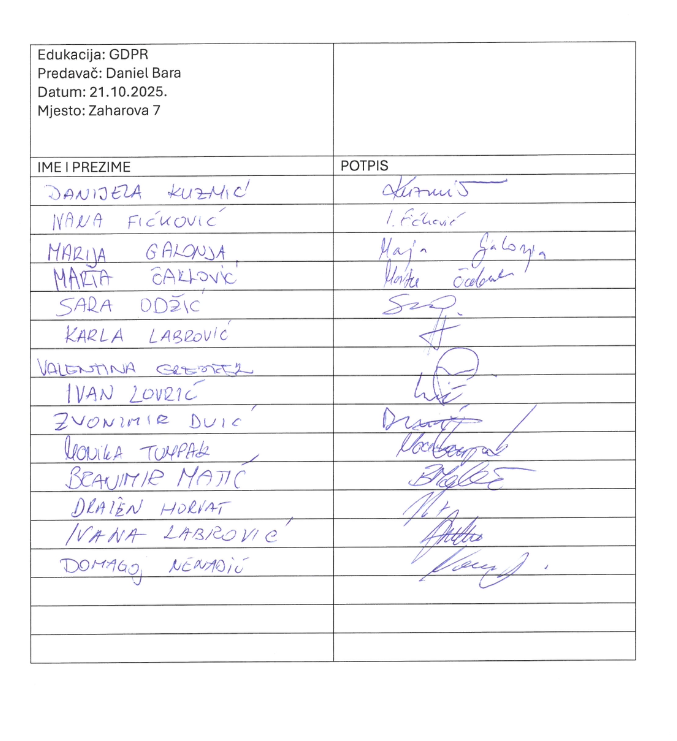 Edukacija: GDPR
Predavač: Daniel Bara
Datum: 21.10.2025.
Mjesto: Zaharova 7
IME I PREZIME POTPIS
DANIJELA KUZMIĆ Kuzmić
IVANA FIČKOVIĆ I. Fičković
MARIJA GALONJA Maja Galonja
MARTA ČAKLOVIĆ Marta
SARA ODŽIĆ
KARLA LABROVIĆ
VALENTINA
IVAN LOVRIĆ
ZVONIMIR DUIĆ
MONIKA TOMPAK
BRANIMIR MATIĆ
DRAŽEN HORVAT
IVANA LABROVIĆ
DOMAGOJ NENADIĆ